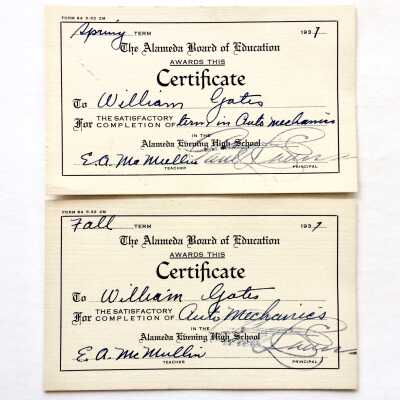 FORM 84 5-32 2M
Spring TERM 1937
The Alameda Board of Education
AWARDS THIS
Certificate
To William Gates
For THE SATISFACTORY COMPLETION OF term in Auto mechanics
IN THE
Alameda Evening High School
E.A. McMullin
TEACHER PRINCIPAL
FORM 84 5-32 2M
Fall TERM 1937
The Alameda Board of Education
AWARDS THIS
Certificate
To William Gates
For THE SATISFACTORY COMPLETION OF Auto Mechanics
IN THE
Alameda Evening High School
E. A. McMullin
TEACHER PRINCIPAL